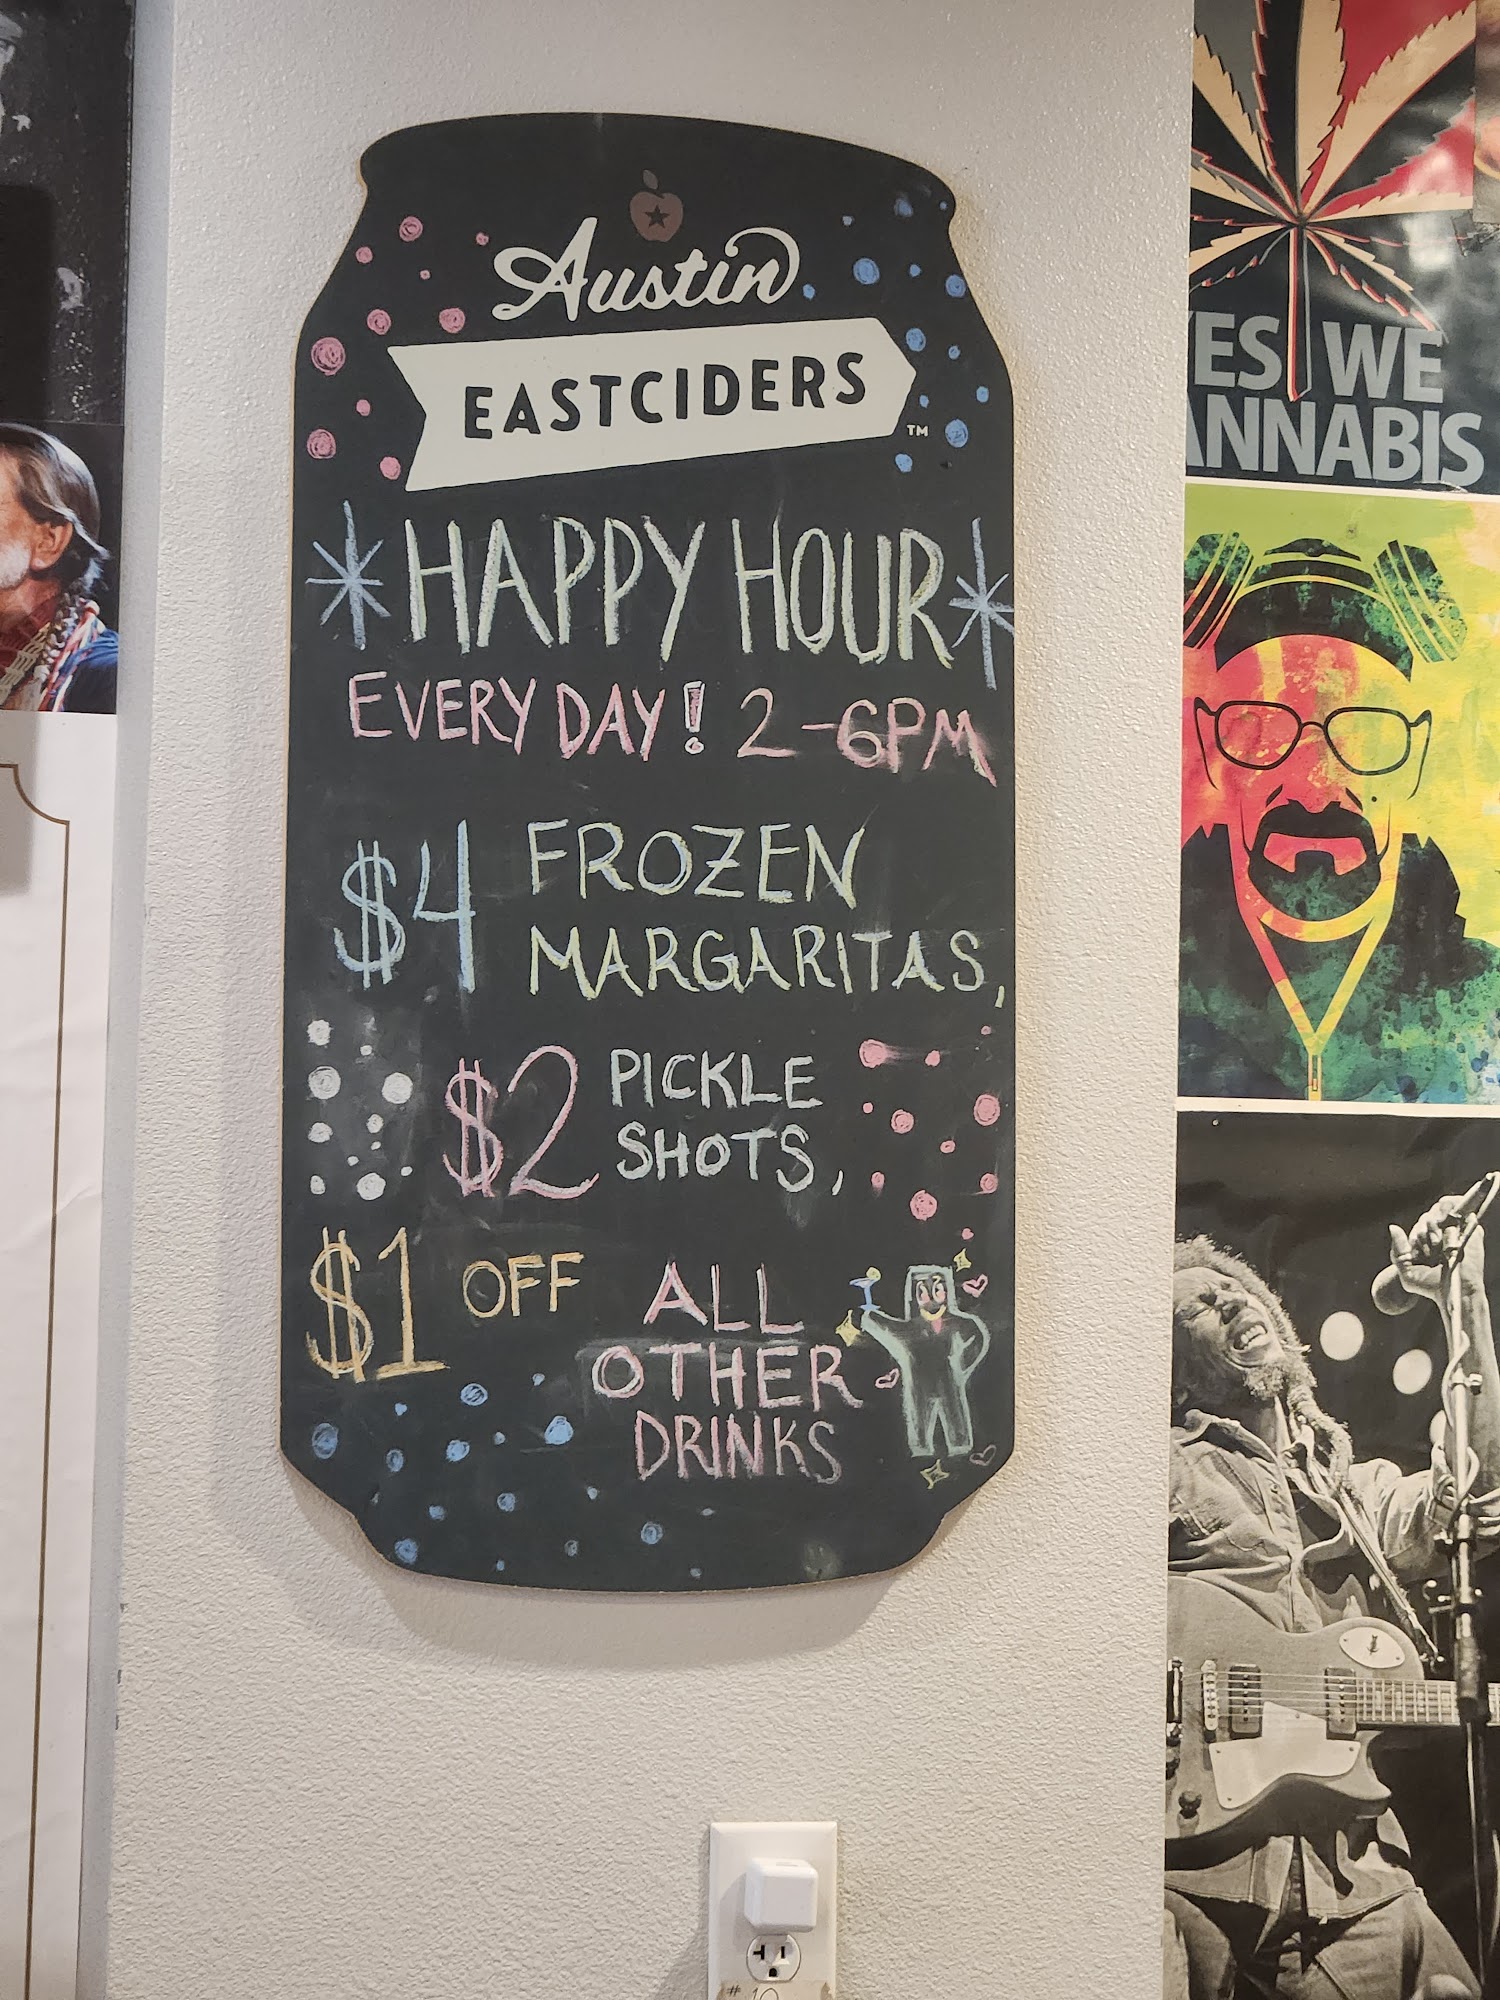 Austin
EASTCIDERS™
*HAPPY HOUR*
EVERY DAY! 2-6PM
$4 FROZEN
MARGARITAS,
$2 PICKLE
SHOTS,
$1 OFF ALL
OTHER
DRINKS
YES WE
ANNABIS
#10